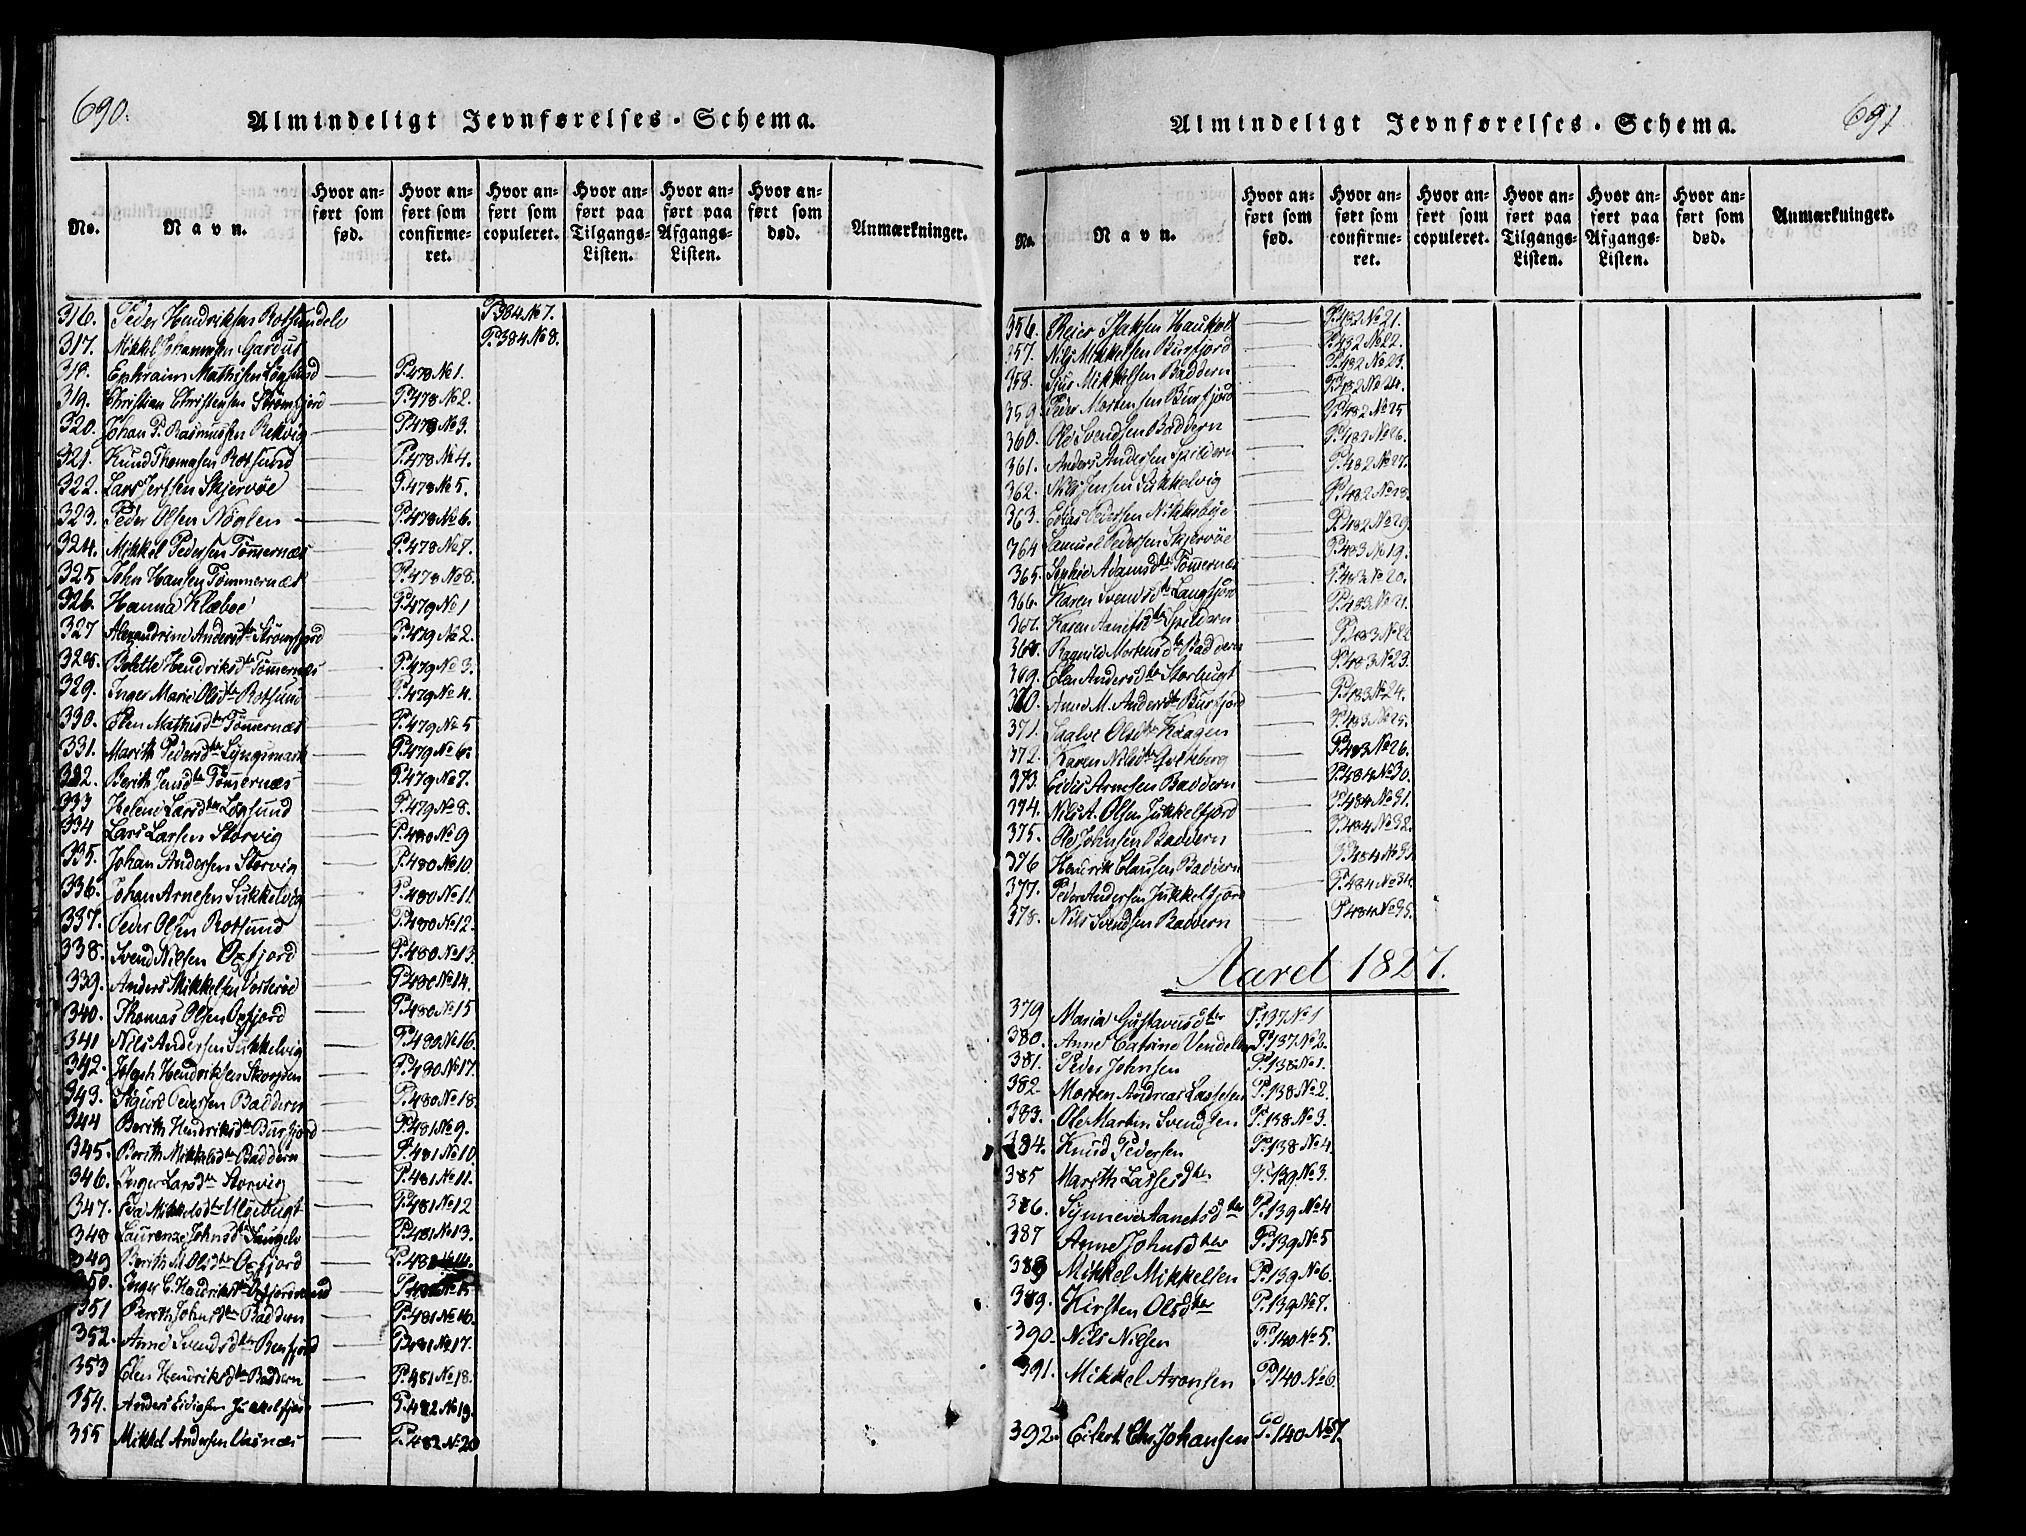 690.
Almindeligt Jevnførelses-Schema.
No.
Navn.
Hvor anført som fød.
Hvor anført som confirmeret.
Hvor anført som copuleret.
Hvor anført paa Tilgangs-Listen.
Hvor anført paa Afgangs-Listen.
Hvor anført som død.
Anmærkninger.
316. Peder Hendriksen Rotsundelv P. 384 No 7.
317. Mikkel Johannesen P. 384 No 8.
318. Ephraim Mathisen Løgsund P. 478 No 1.
319. Christian Christensen Strømfjord P. 478 No 2.
320. Johan P. Rasmussen Rekvig P. 478 No 3.
321. Knud Thomasen Rotsund P. 478 No 4.
322. Lars Skjervøe P. 478 No 5.
323. Peder Olsen Nøglen P. 478 No 6.
324. Mikkel Pedersen Tømmernæs P. 478 No 7.
325 John Hansen Tømmernæs P. 478 No 8.
326. Hanna Klæboe P. 479 No 1
327 Alexandrine Andersdtr Strømfjord P. 479 No 2.
328. Bolette Hendriksdtr Tømernæs P. 479 No 3.
329. Inger Marie Olsdtr Rotsund P. 479 No 4.
330. Elen Mathisdtr Tømernæs P. 479 No 5
331. Marith Pedersdtr Lyngsmark P. 479 No 6.
332. Berith Jensdtr Tømernæs P. 479 No 7.
333 Helene Larsdtr Løgsund P. 479 No 8.
334 Lars Larsen Storvig P. 480 No 9
335. Johan Andersen Storvig P. 480 No 10.
336. Johan Arnesen Sukkelvig P. 480 No 11.
337. Peder Olsen Rotsund P. 480 No 12.
338. Svend Nielsen Oxfjord P. 480 No 13.
339. Anders Mikkelsen Vorterøe P. 480 No 14.
340. Thomas Olsen Oxfjord P. 480 No 15
341 Nils Andersen Sukkelvig P. 480 No 16.
342. Joseph Hendriksen Skorpen P. 480 No 17.
343. Sigurd Pedersen Baddern P. 480 No 18.
344 Berith Hendriksdtr Burfjord P. 481 No 9.
345. Berith Mikkelsdtr Baddern P. 481 No 10.
346. Inger Larsdtr Storvig P. 481 No 11.
347. Eva Mikkelsdtr Ulgebugt P. 481 No 12
348 Laurenze Johnsdtr P. 481 No 13.
349 Berith M. Olsdtr Oxfjord P. 481 No 14.
350. Inger C. Hendriksdtr No 15
351 Berith Johnsdtr Baddern P. 481 No 16.
352. Anne Svendsdtr Burfjord P. 481 No 17.
353 Elen Hendriksdtr Baddern P. 481 No 18.
354. Anders Eidisen Jukkelfjord P. 482 No 19.
355 Mikkel Andersen P. 482 No 20
691
Almindeligt Jevnførelses-Schema.
No.
Navn.
Hvor anført som fød.
Hvor anført som confirmeret.
Hvor anført som copuleret.
Hvor anført paa Tilgangs-Listen.
Hvor anført paa Afgangs-Listen.
Hvor anført som død.
Anmærkninger.
356. Reier Isaksen P. 482 No 21.
357. Nils Mikkelsen Burfjord P. 482 No 22.
358. Mikkelsen Baddern P. 482 No 23.
359. Peder Mortensen Burfjord P. 482 No 24.
360. Ole Svendsen Baddern P. 482 No 25
361. Anders Andersen Spildern P. 482 No 26.
362. Nils Jensen Sukkelvig P. 482 No 27.
363. Elias Pedersen Nikkebye P. 482 No 28.
364 Samuel Pedersen Skjervøe P. 482 No 29.
365. Sophie Adamsdtr Tømernæs P. 483 No 19.
366. Karen Svendsdtr Langfjord P. 483 No 20.
367. Karen Spildern P. 483 No 21.
368. Ragnild Mortensdtr Baddern P. 483 No 22
369. Elen Andersdtr Storbugt P. 483 No 23.
370. Anne M. Andersdtr Burfjord P. 483 No 24.
371. Olsdtr Kaagen P. 483 No 25.
372. Karen Nilsdtr P. 483 No 26.
373. Eidis Arnesen Baddern P. 484 No 30.
374. Nils A. Olsen Jukkelfjord P. 484 No 31.
375. Ole Johnsen Baddern P. 484 No 32.
376 Hendrik Clausen Baddern P. 484 No 33
377. Peder Andersen Jukkelfjord P. 484 No 34.
378. Nils Svendsen Baddern P. 484 No 35.
Aaret 1827.
379 Maria Gustavusdtr P. 137 No 1
380. Anne Catrine Vendelbor P. 137 No 2.
381. Peder Johnsen P. 138 No 1.
382 Morten Andreas Lassesen P. 138 No 2.
383. Ole Martin Svendsen P. 138 No 3.
384. Knud Pedersen P. 138 No 4.
385 Marith Lassesdtr P. 139 No 3.
386. Synneve Aanetsdtr P. 139 No 4
387 Anne Johnsdtr P. 139 No 5
388 Mikkel Mikkelsen P. 139 No 6.
389. Kirsten Olsdtr P. 139 No 7.
390. Nils Nilsen P. 140 No 5.
391. Mikkel Aronsen P. 140 No 6.
392. Eilert Chr. Johansen P. 140 No 7.